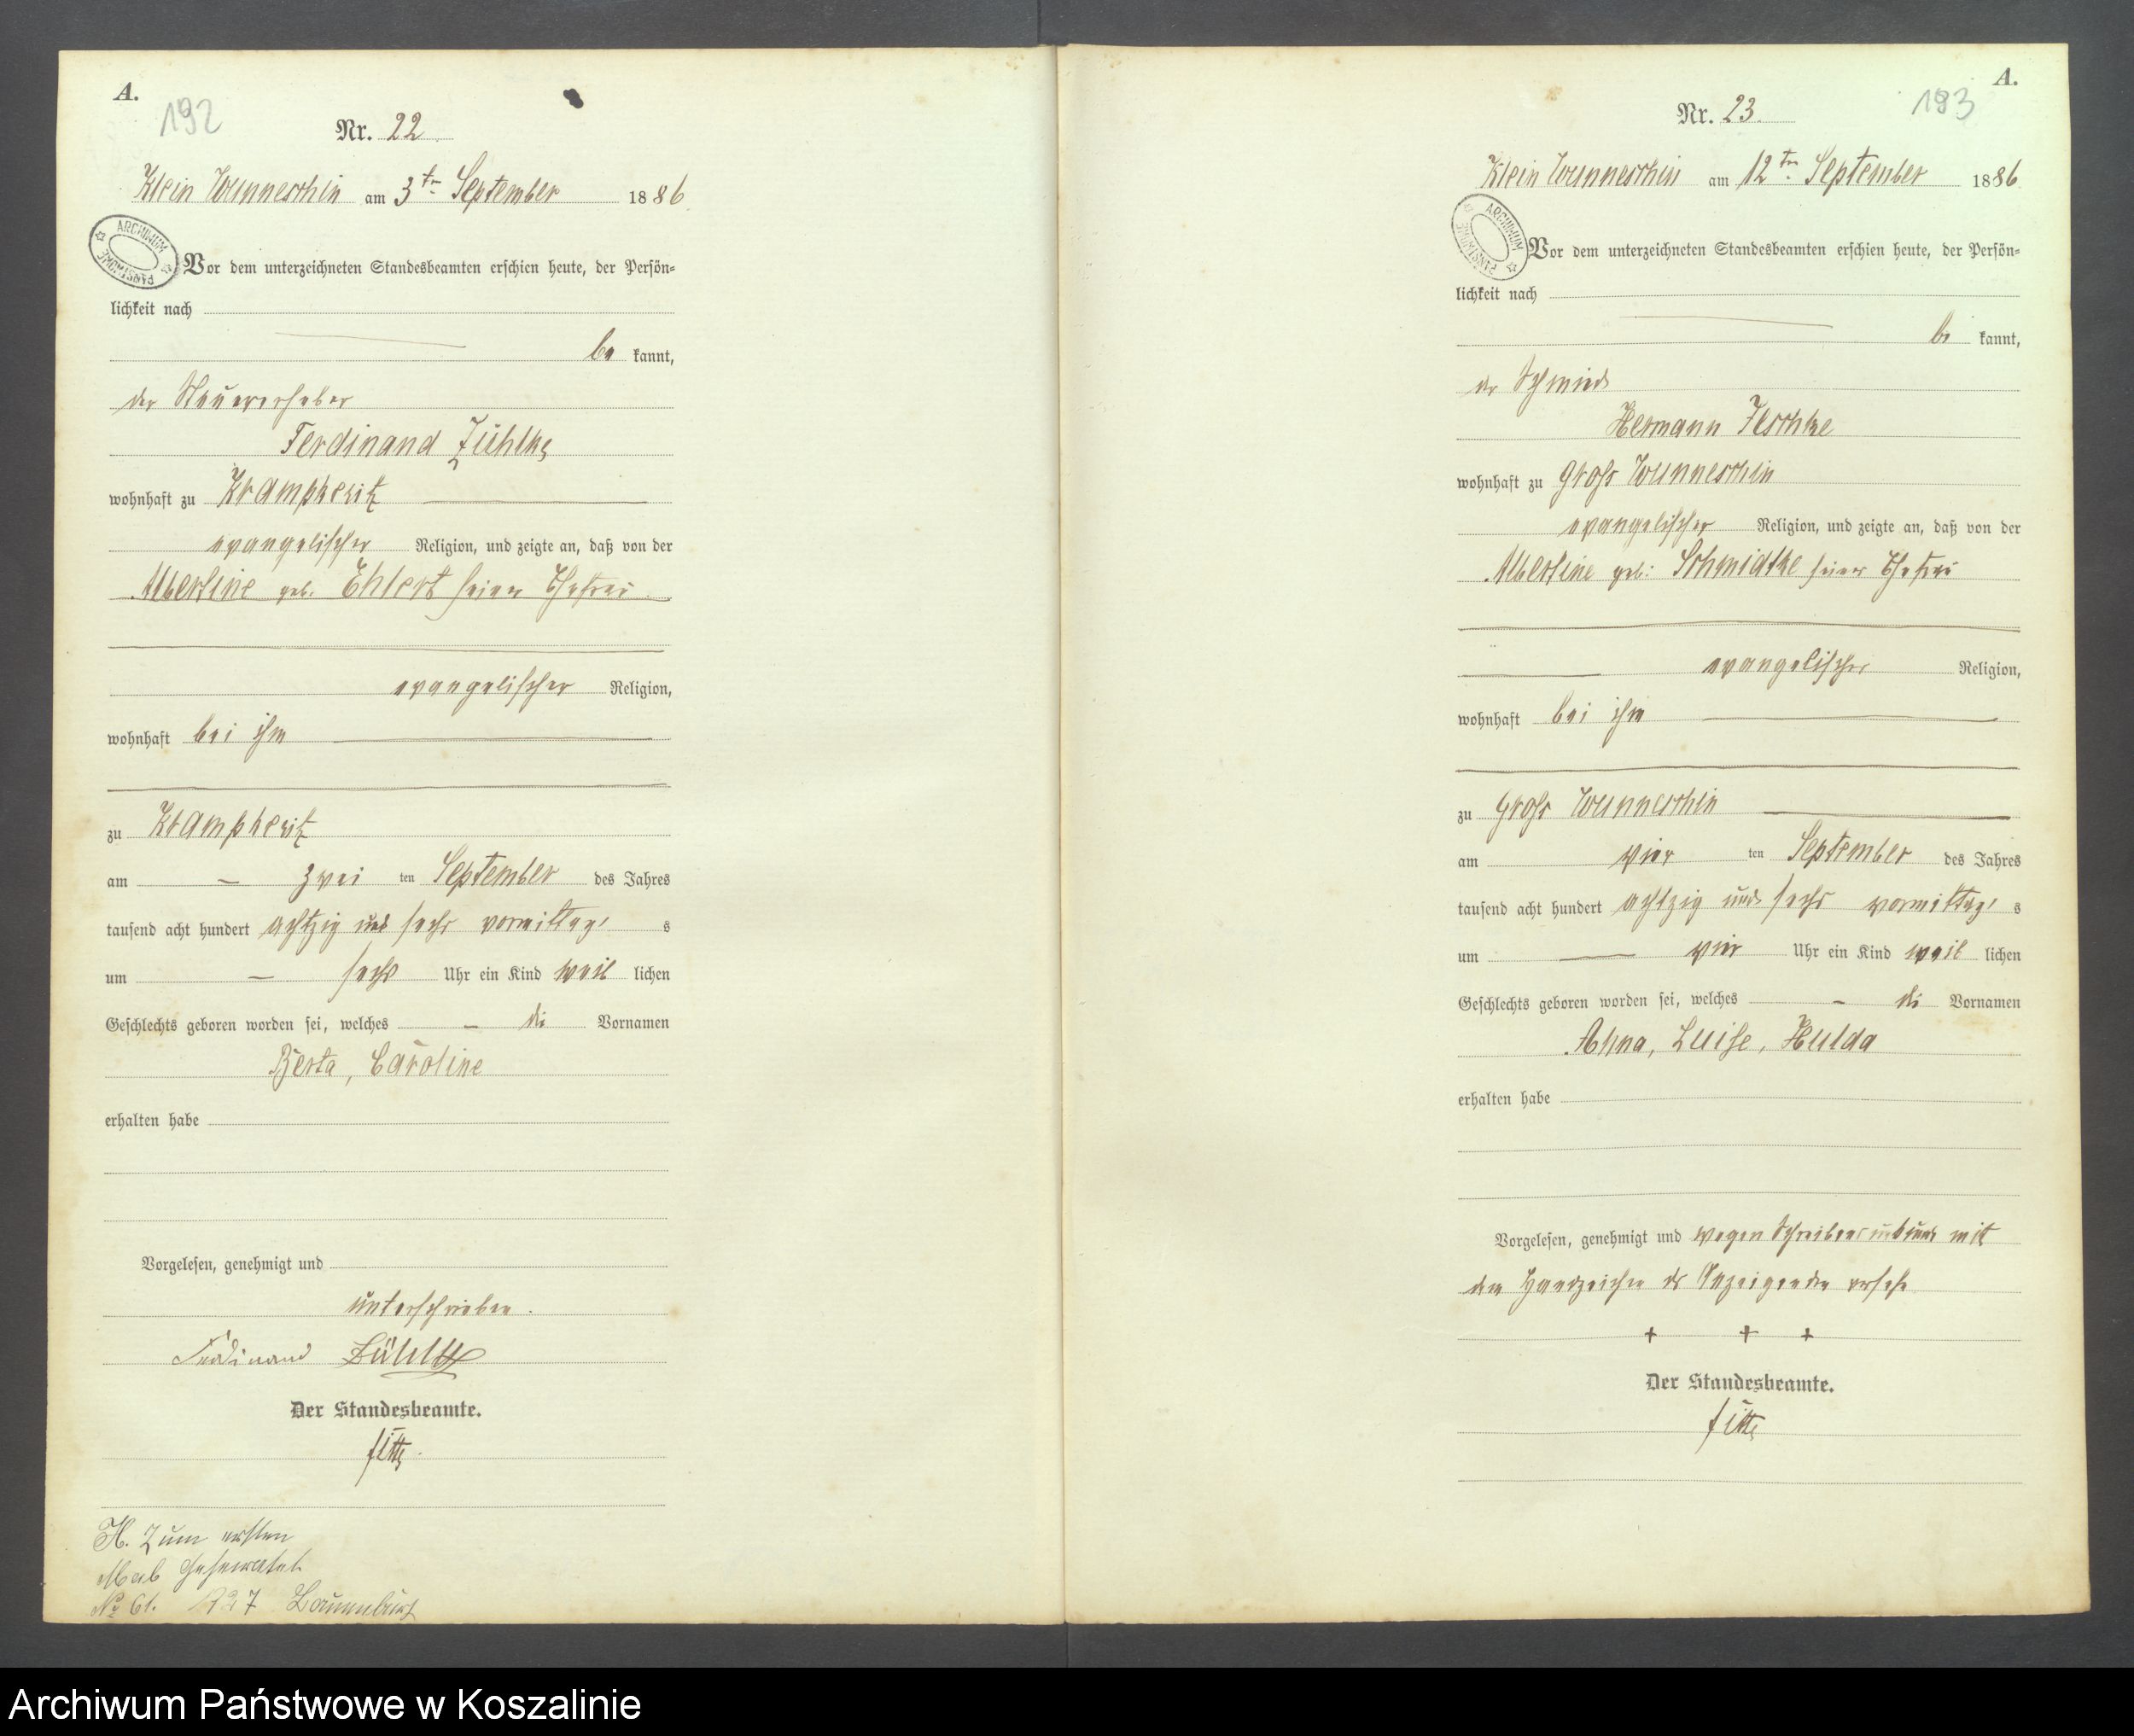 A.
192
Nr. 22
Klein Wunneschin am 3ten September 1886
ARCHIWUM PAŃSTWOWE
Vor dem unterzeichneten Standesbeamten erschien heute, der Persön=
lichkeit nach
be kannt,
der Steuererheber
Ferdinand Zühlke
wohnhaft zu Krampkewitz
evangelischer Religion, und zeigte an, daß von der
Albertine geb. Ehlert seiner Ehefrau
evangelischer Religion,
wohnhaft bei ihm
zu Krampkewitz
am zwei ten September des Jahres
tausend acht hundert achtzig und sechs vormittag s
um sechs Uhr ein Kind weib lichen
Geschlechts geboren worden sei, welches die Vornamen
Berta, Caroline
erhalten habe
Vorgelesen, genehmigt und
unterschrieben.
Ferdinand Zühlke
Der Standesbeamte.
H. Zum ersten
Mal geheiratet
No 61. 1927 Lauenburg
A.
193
Nr. 23.
Klein Wunneschin am 12ten September 1886
ARCHIWUM PAŃSTWOWE
Vor dem unterzeichneten Standesbeamten erschien heute, der Persön=
lichkeit nach
be kannt,
der Schmied
Hermann Jeschke
wohnhaft zu Groß Wunneschin
evangelischer Religion, und zeigte an, daß von der
Albertine geb: Schmidtke seiner Ehefrau
evangelischer Religion,
wohnhaft bei ihm
zu Groß Wunneschin
am vier ten September des Jahres
tausend acht hundert achtzig und sechs vormittag s
um vier Uhr ein Kind weib lichen
Geschlechts geboren worden sei, welches die Vornamen
Anna, Luise, Hulda
erhalten habe
Vorgelesen, genehmigt und wegen Schreibensunkunde mit
den Handzeichen des Anzeigenden versehen
+ + +
Der Standesbeamte.
Archiwum Państwowe w Koszalinie